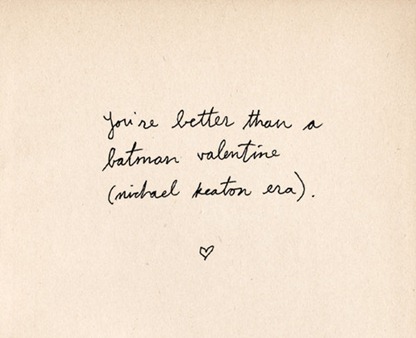 You're better than a
batman valentine
(michael keaton era).